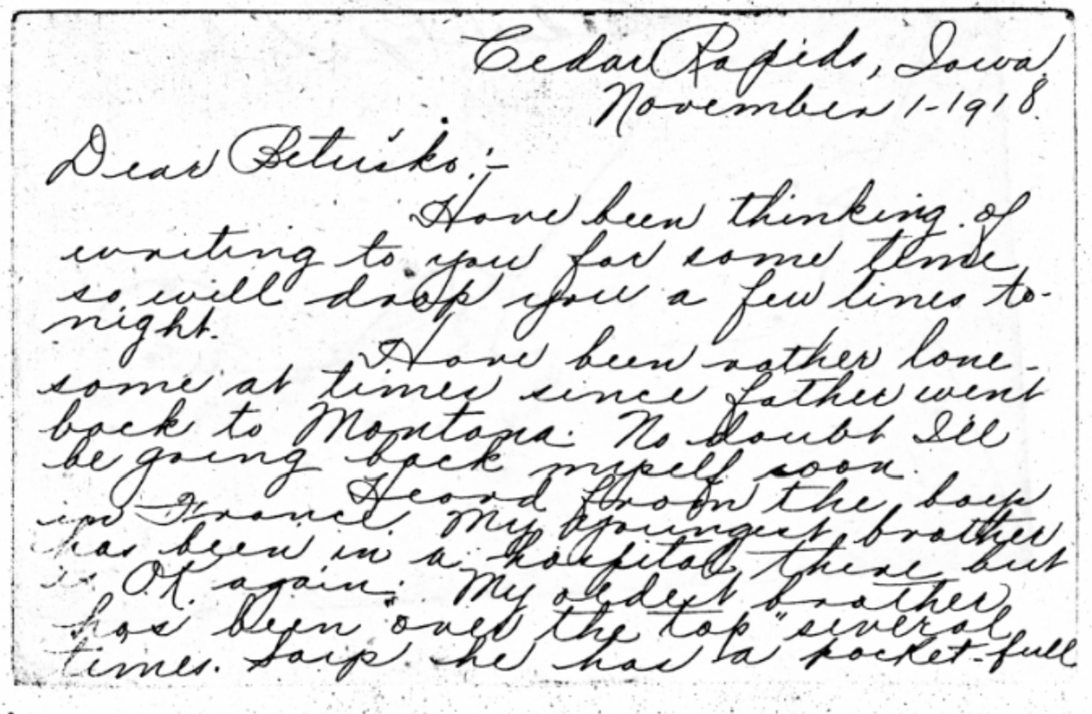 Cedar Rapids, Iowa,
November 1-1918.
Dear Betusko:-
Have been thinking of
writing to you for some time
so will drop you a few lines to-
night.
Have been rather lone-
some at times since father went
back to Montana. No doubt I'll
be going back myself soon.
Heard from the boys
in France. My youngest brother
has been in a hospital there but
is OK. again. My oldest brother
has been "over the top" several
times. Says he has a pocket-full